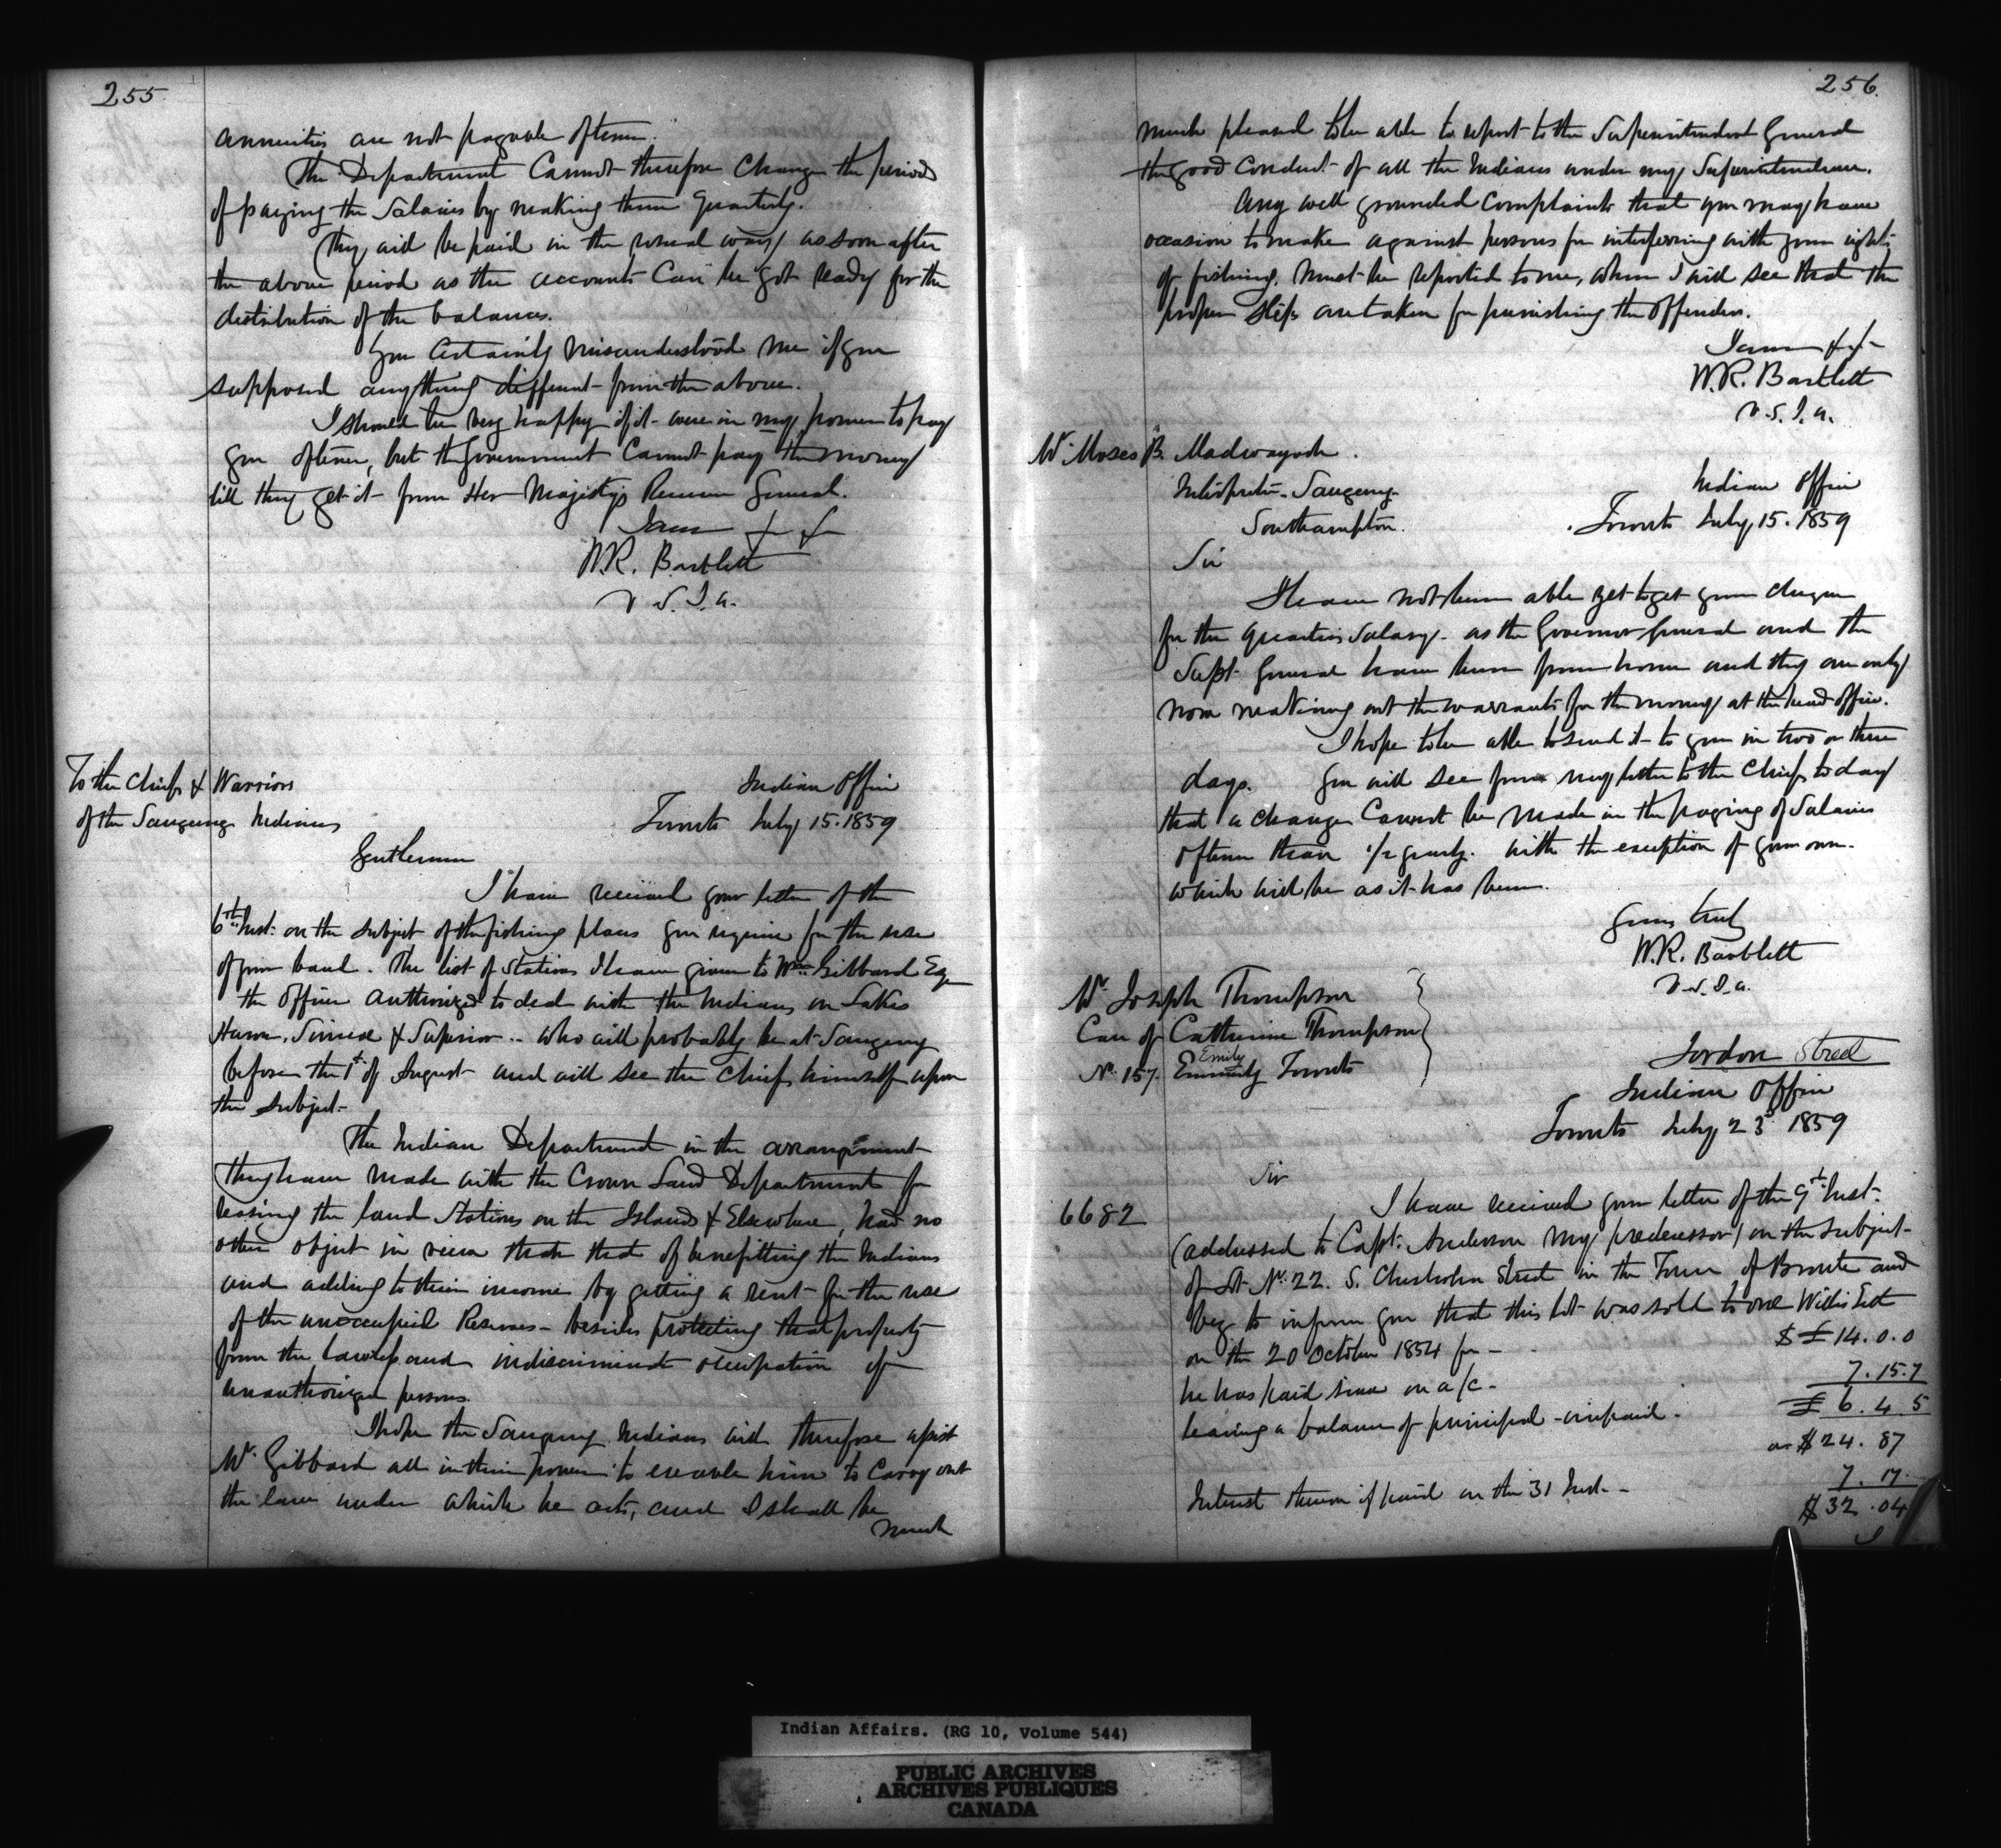 255
annuities are not payable oftener.
The Department Cannot therefore Change the period
of paying the Salaries by making them Quarterly.
They will be paid in the usual way as soon after
the above period as the accounts Can be got ready for the
distribution of the balances.
You Certainly misunderstood me if you
supposed anything different from the above.
I should be very happy if it were in my power to pay
you oftener, but the Government Cannot pay the money
till they get it from Her Majesty's Receiver General.
I am &c &c
W.R. Bartlett
V.S.I.A.
To the Chiefs & Warriors
of the Saugeeng Indians
Indian Office
Toronto July 15. 1859
Gentlemen
I have received your letter of the
6th Inst. on the subject of the fishing places you require for the use
of your band. The list of Stations I have given to Wm Gibbard Esq
the Officer Authorized to deal with the Indians on Lakes
Huron, Simcoe & Superior - who will probably be at Saugeeng
before the 1st of August and will see the Chiefs himself upon
the Subject.
The Indian Department in the arrangement
they have made with the Crown Land Department for
leasing the land Stations on the Islands & Elsewhere, had no
other object in view than that of benefitting the Indians
and adding to their income by getting a rent for the use
of the unoccupied Reserves - besides protecting that property
from the lawless and indiscriminate occupation of
unauthorized persons.
I hope the Saugeeng Indians will therefore assist
Mr. Gibbard all in their power to enable him to Carry out
the law under which he acts, and I shall be
much
256.
much pleased to be able to report to the Superintendent General
the good Conduct of all the Indians under my Superintendence.
Any well grounded Complaints that you may have
occasion to make against persons for interfering with your rights
of fishing, must be reported to me, when I will see that the
proper steps are taken for punishing the Offenders.
I am &c
W.R. Bartlett
V.S.I.A.
Mr. Moses B. Madwayosh.
Interpreter - Saugeeng
Southampton.
Indian Office
Toronto July 15. 1859
Sir
I have not been able yet to get your cheque
for the Quarters Salary - as the Governor General and the
Supt General have been from home and they are only
now making out the warrants for the money at the head office.
I hope to be able to send it to you in two or three
days. You will see from my letter to the Chiefs to day
that a change Cannot be made in the paying of Salaries
oftener than 1/2 yearly. with the exception of your own.
which will be as it has been.
Yours truly
W.R. Bartlett
V.S.I.A.
Mr. Joseph Thompson
Care of Catherine Thompson
No. 157. Emily Toronto
Street
Indian Office
Toronto July 23d 1859
Sir
6682
I have received your letter of the 9th Inst.
(addressed to Capt. Anderson my predecessor) on the subject
of Lot No. 22. S. Chisholm Street in the Town of Bronte and
beg to inform you that this lot was sold to one Willis
on the 20 October 1854 for - £14.0.0
he has paid since on a/c - 7.15.7
leaving a balance of principal unpaid - £6.4.5
or $24.87
Interest thereon if paid on the 31 Inst. - 7.17.
$32.04
I
Indian Affairs. (RG 10, Volume 544)
PUBLIC ARCHIVES
ARCHIVES PUBLIQUES
CANADA